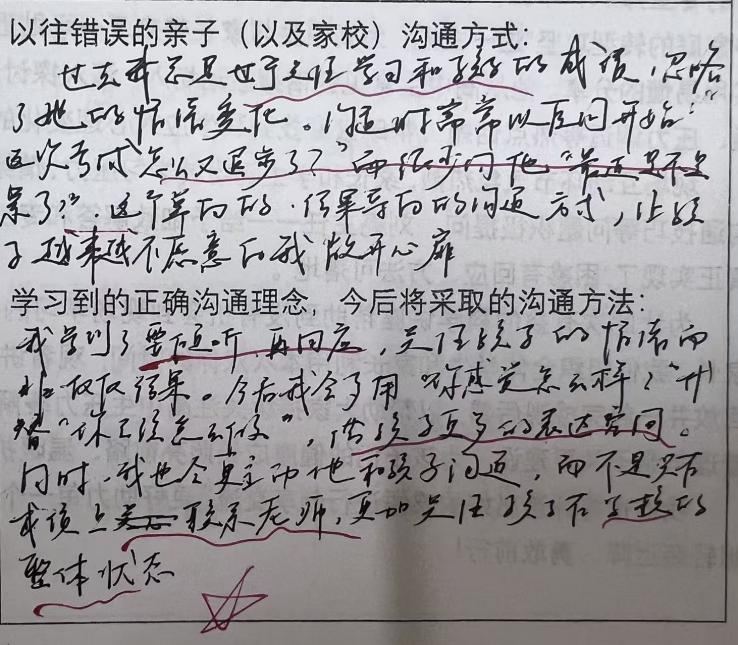 以往错误的亲子（以及家校）沟通方式：
过去我总是过于关注学习和孩子的成绩，忽略
了她的情绪变化。沟通时常常以质问开始：
这次考试“怎么又退步了？”而很少问他“最近是不是
累了？”这个单向的、结果导向的沟通方式，让孩
子越来越不愿意向我敞开心扉
学习到的正确沟通理念，今后将采取的沟通方法：
我学到了要倾听，再回应，关注孩子的情绪而
非仅仅结果。今后我会多用“你感觉怎么样？”代
替“你应该怎么做”，供孩子更多的表达空间。
同时，我也会更主动地和孩子沟通，而不是只在
成绩上联系老师，更加关注孩子在学校的
整体状态